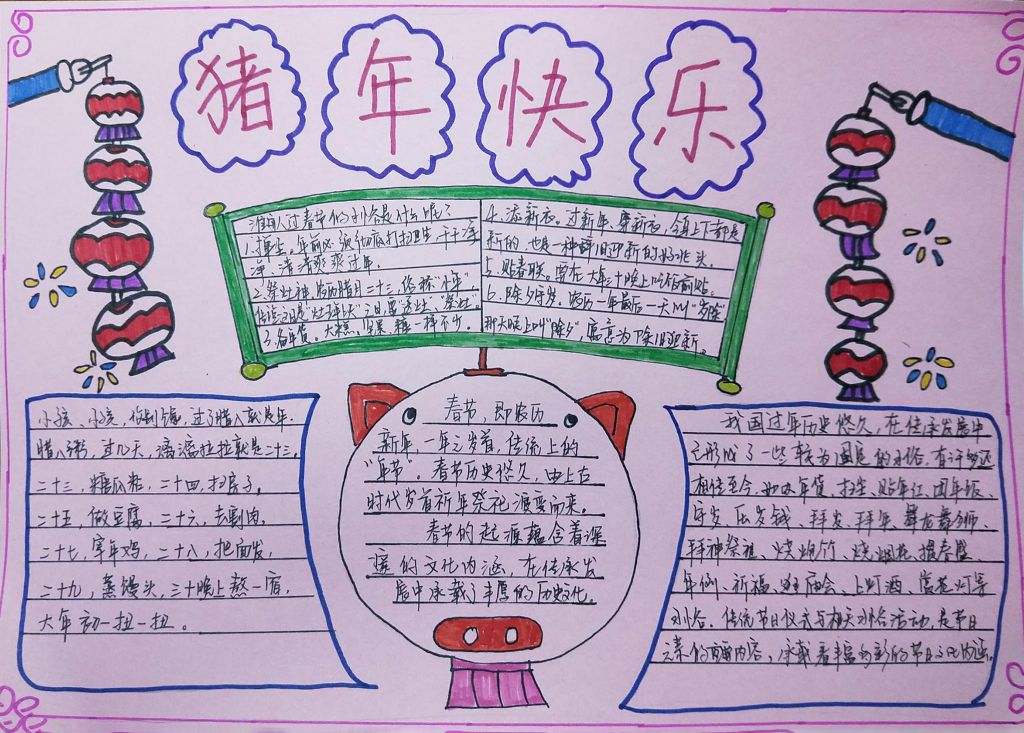 猪年快乐
淮南人过春节的习俗是什么呢?
1、掸尘。年前必须彻底打扫卫生,干干净
净、清清爽爽过年。
2、祭灶神,农历腊月二十三,俗称"小年"
3、备年货。大糕、坚果、糖一样不少。
4、添新衣。过新年、穿新衣,全身上下都是
新的,也是一种辞旧迎新的好兆头。
5、贴春联。常在大年三十晚上吃饭前贴。
6、除夕守岁。农历一年最后一天叫"岁除"
那天晚上叫"除夕",寓意为除旧迎新。
小孩、小孩,你别馋,过了腊八就是年。
腊八粥,过几天,漓漓拉拉就是二十三。
二十三,糖瓜粘,二十四,扫房子。
二十五,做豆腐,二十六,去割肉。
二十七,宰年鸡,二十八,把面发,
二十九,蒸馒头,三十晚上熬一宿,
大年初一扭一扭。
春节,即农历
新年,一年之岁首,传统上的
"年节"。春节历史悠久,由上古
时代岁首祈年祭祀演变而来。
春节的起源蕴含着深
邃的文化内涵,在传承发
展中承载了丰厚的历史文化。
我国过年历史悠久,在传承发展中
已形成了一些较为固定的习俗,有许多还
相传至今,如办年货、扫尘、贴年红、团年饭、
守岁、压岁钱、拜岁、拜年、舞龙舞狮、
拜神祭祖、烧炮竹、烧烟花、掼春盛、
年例、祈福、逛庙会、上灯酒、赏花灯等
习俗。传统节日仪式与相关习俗活动,是节日
元素的内容,承载着丰富多彩的节日文化内涵。